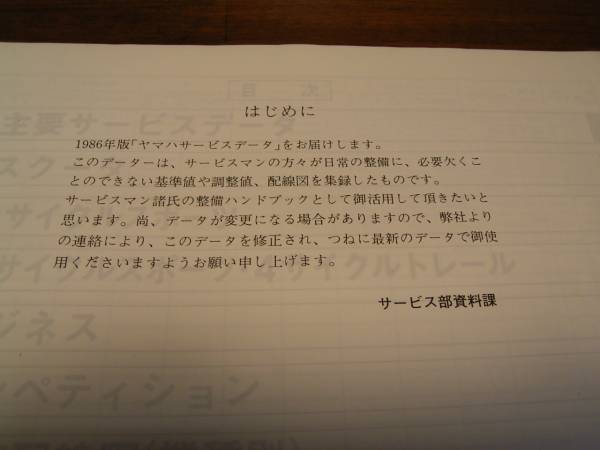 目 次
はじめに
主要サービスデータ
1986年版「ヤマハサービスデータ」をお届けします。
このデーターは、サービスマンの方々が日常の整備に、必要欠くこ
とのできない基準値や調整値、配線図を集録したものです。
サービスマン諸氏の整備ハンドブックとして御活用して頂きたいと
思います。尚、データが変更になる場合がありますので、弊社より
の連絡により、このデータを修正され、つねに最新のデータで御使
用くださいますようお願い申し上げます。
サイクルスポーツ・4サイクルトレール
サービス部資料課
ジネス
ンペティション